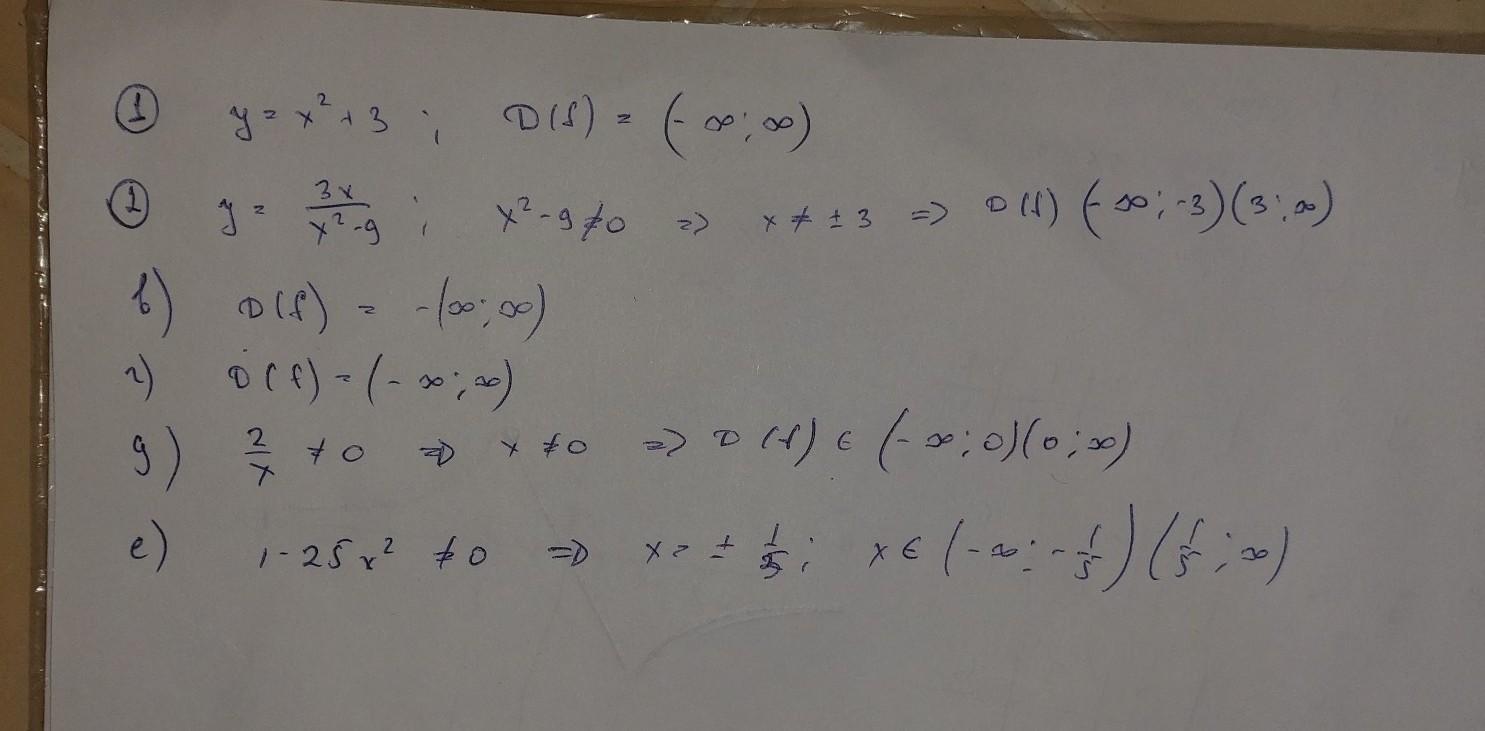 ① y = x² + 3 ; D(f) = (- ∞; ∞)
② y = 3x/(x² - 9) ; x² - 9 ≠ 0 => x ≠ ± 3 => D(f) (- ∞; -3)(3; ∞)
в) D(f) = -(∞; ∞)
г) D(f) = (- ∞; ∞)
g) 2/x ≠ 0 => x ≠ 0 => D(f) ∈ (- ∞; 0)(0; ∞)
е) 1 - 25x² ≠ 0 => x = ± 1/5; x ∈ (-∞; -1/5)(1/5; ∞)